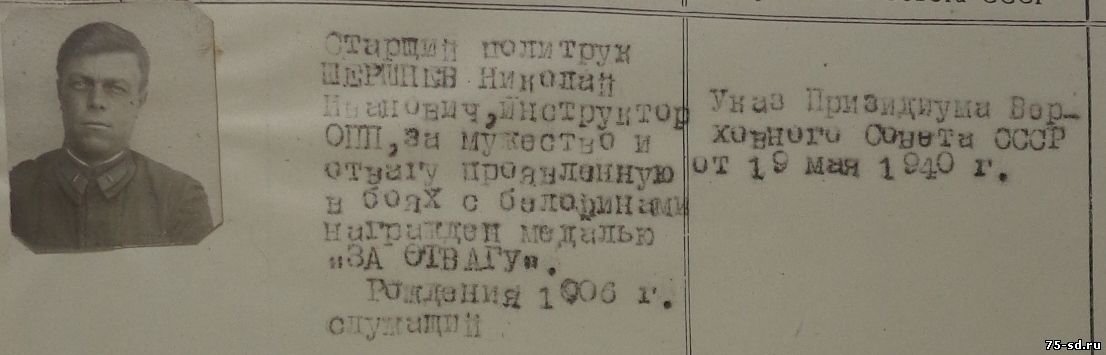 Старщий политрук
ШЕРШНЕВ Николай
Иванович, инструктор
ОПП, за мужество и
отвагу проявленную
в боях с белофинами
награжден медалью
"ЗА ОТВАГУ".
Рождения 1906 г.
служащий
Указ Призидиума Вер-
ховного Совета СССР
от 19 мая 1940 г.
СССР
75-sd.ru